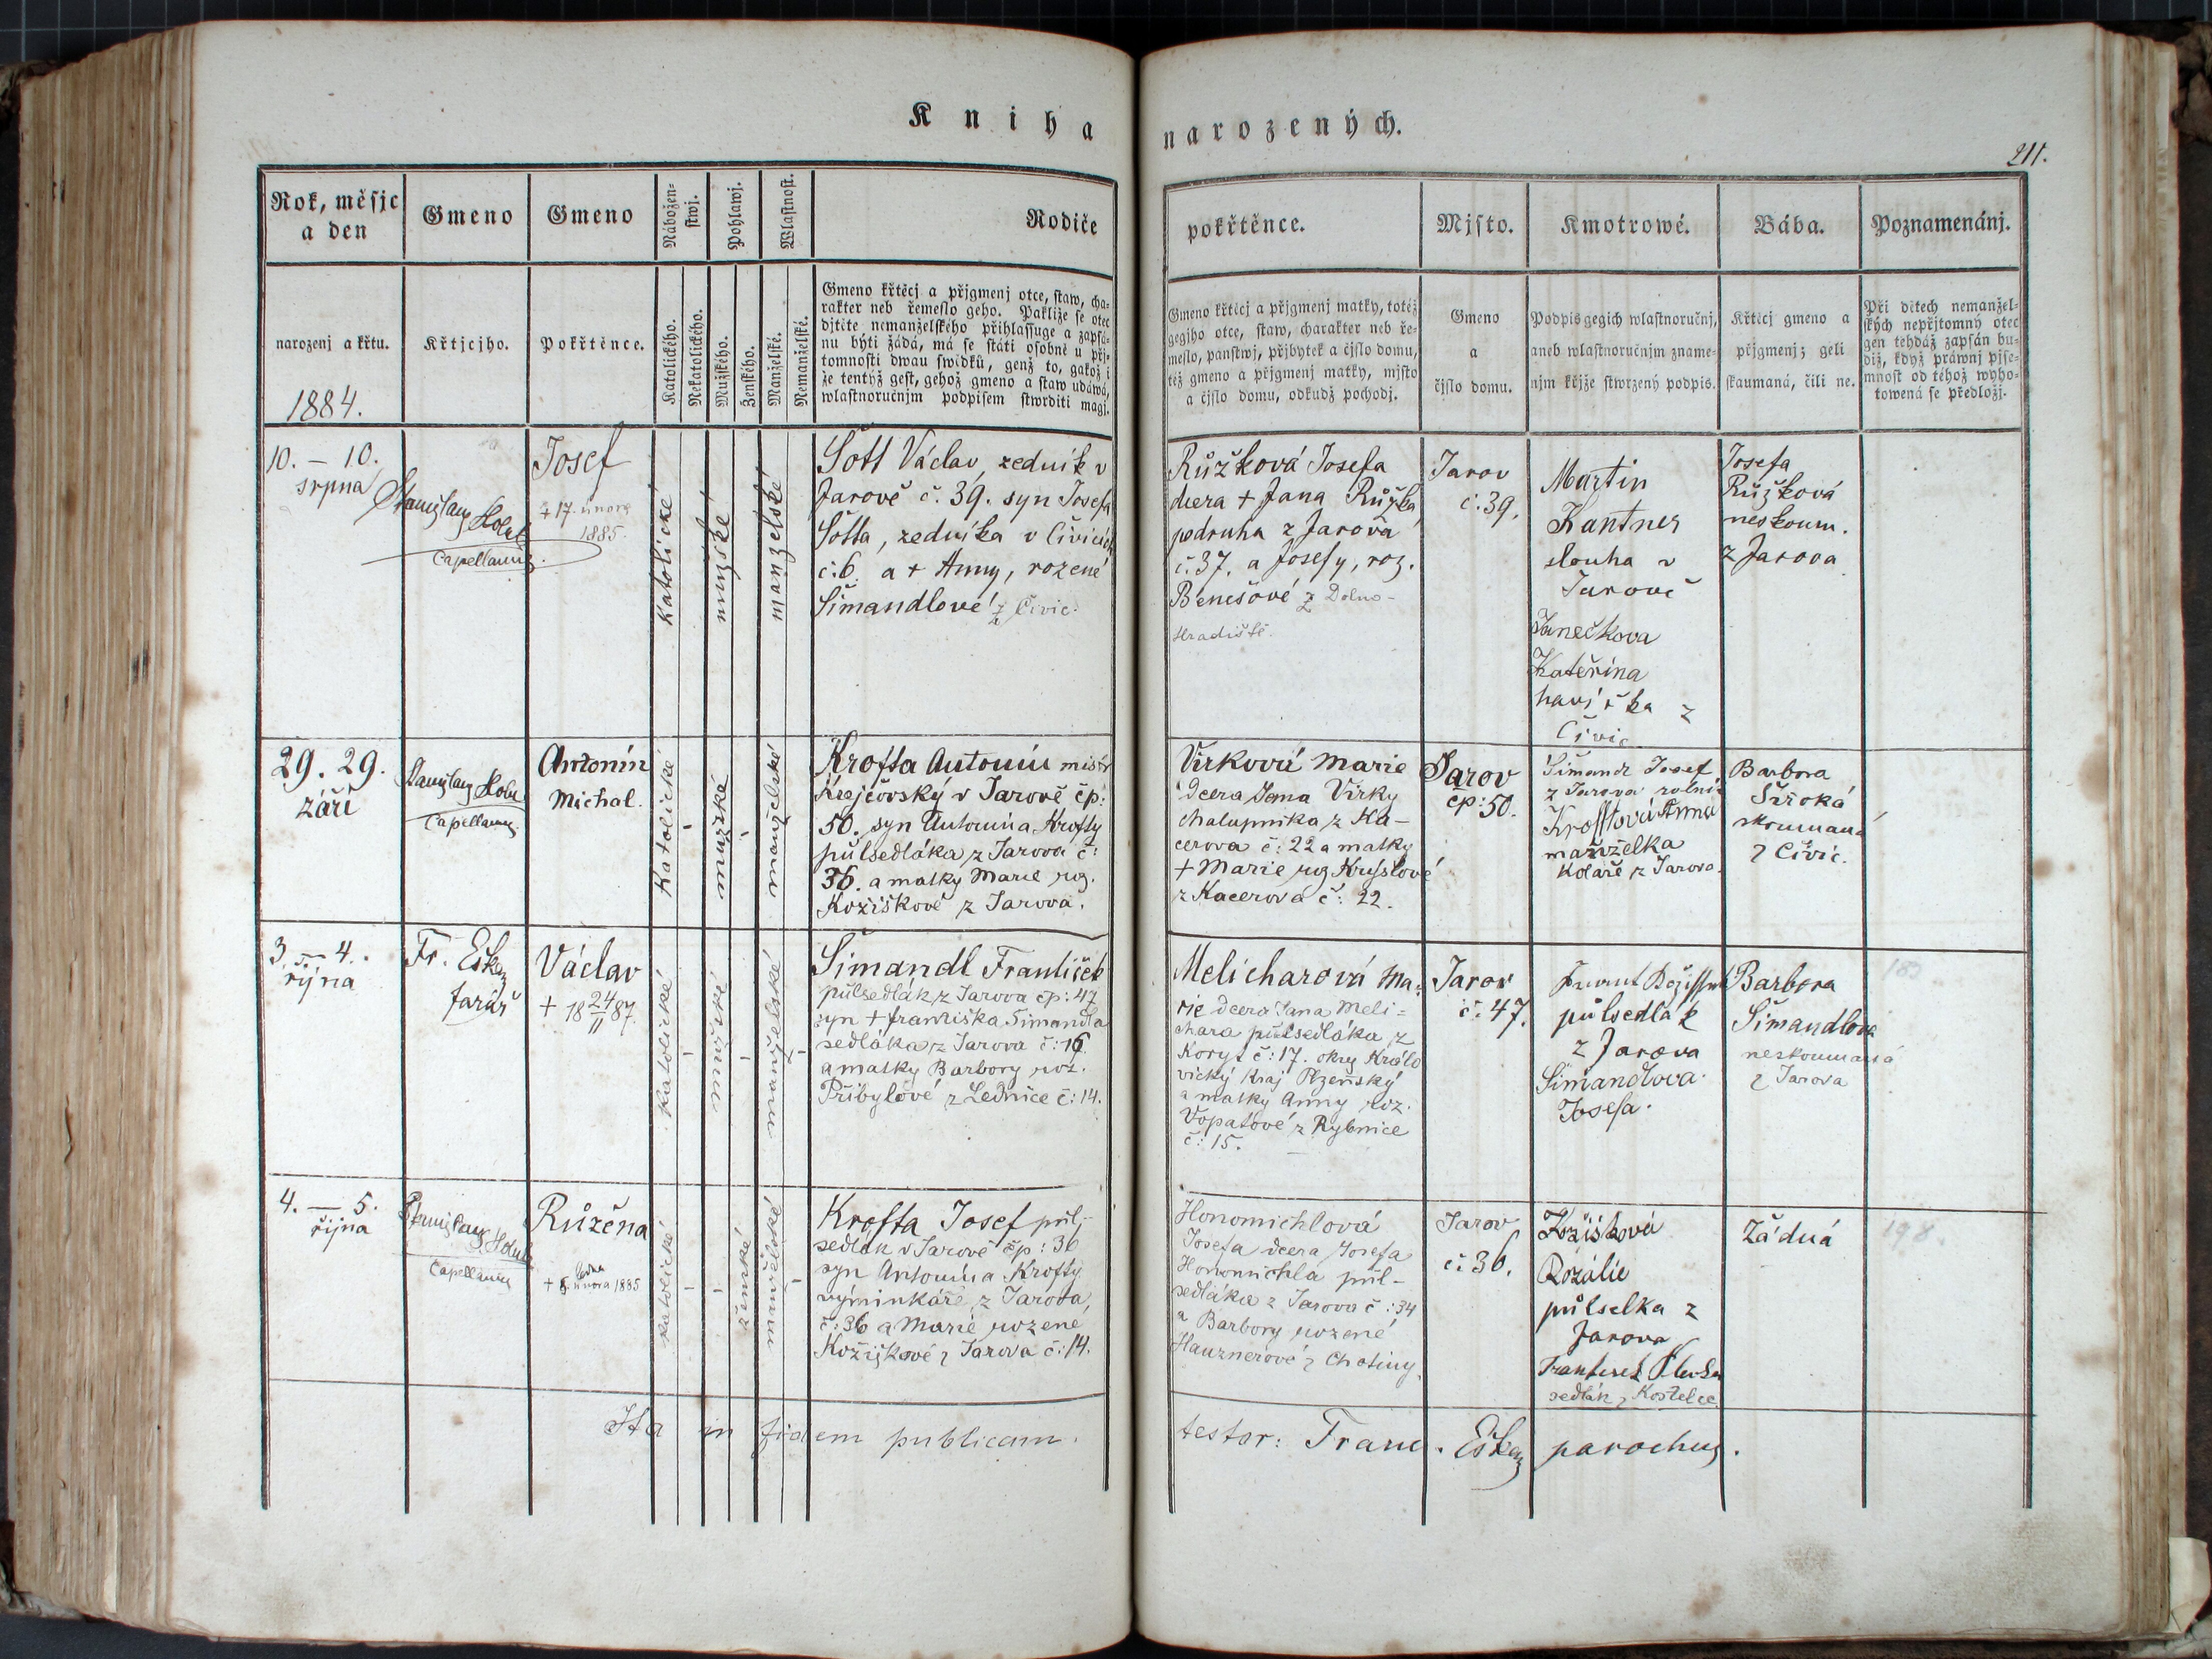 Kniha narozených.
211.
Rok, měsjc a den
Gmeno
Gmeno
Nábožen-stwj.
Pohlawj.
Wlastnost.
Rodiče
pokřtěnce.
Mjsto.
Kmotrowé.
Bába.
Poznamenánj.
narozenj a křtu.
1884.
Křtjcjho.
Pokřtěnce.
Katolického.
Nekatolického.
Mužského.
Ženského.
Manželské.
Nemanželské.
Gmeno křtěcj a přjgmenj otce, staw, cha-
rakter neb řemeslo geho. Pakliže se otec
djtěte nemanželského přihlassuge a zapsá-
nu býti žádá, má se státi osobně u přj-
tomnosti dwau swědků, genž to, gakož i
že tentýž gest, gehož gmeno a staw udáwá,
wlastnoručnjm podpisem stwrditi magj.
Gmeno křtěcj a přjgmenj matky, totéž
gegjho otce, staw, charakter neb ře-
meslo, panstwj, přjbytek a čjslo domu,
též gmeno a přjgmenj matky, mjsto
a čjslo domu, odkudž pochodj.
Gmeno
a
čjslo domu.
Podpis gegich wlastnoručnj,
aneb wlastnoručnjm zname-
njm křjže stwrzený podpis.
Křtěcj gmeno a
přjgmenj; geli
skaumaná, čili ne.
Při dětech nemanžel-
ských nepřjtomný otec
gen tehdáž zapsán bu-
diž, když práwnj pjse-
mnost od téhož wyho-
towená se předložj.
10. – 10.
srpna
Capellanus.
Josef
+ 17. února
1885.
Katolické
mužské
manželské
Šott Václav, zedník v
Jarově č. 39. syn Josefa
Šotta, zedníka v Čivicích
č. 6. a + Anny, rozené
Šimandlové z Čivic.
Růžková Josefa
dcera + Jana Růžka
podruha z Jarova
č. 37. a Josefy, roz.
Benešové z Dolno-
Hradiště.
Jarov
č. 39.
Martin
Kantner
slouha v
Jarově
Janečkova
Kateřina
havířka z
Čivic
Josefa
Růžková
neskoum.
z Jarova
29. 29.
září
Capellanus.
Antonín
Michal.
Katolické
mužské
manželské
Krofta Antonín mistr
Krejčovský v Jarově čp:
50. syn Antonína Krofty
půlsedláka z Jarova č:
36. a matky Marie roz.
Kožiškové z Jarova.
Virková Marie
dcera Jana Virky
chalupníka z Ka-
cerova č: 22 a matky
+ Marie roz Kryslové
z Kacerova č: 22.
Jarov
čp: 50.
Šimandl Josef
z Jarova rolník
Anna
manželka
Koláře z Jarova.
Barbora
Široká
skoumaná
z Čivic.
3. – 4.
října
Fr. Eška
farář
Václav
+ 18 24/II 87.
Katolické
mužské
manželské
Šimandl František
půlsedlák z Jarova čp: 47
syn + Františka Šimandla
sedláka z Jarova č: 16.
a matky Barbory roz.
Přibylové z Lednice č: 14.
Melicharová Ma-
rie dcera Jana Meli-
chara půlsedláka z
Koryt č: 17. okres Králo
vický Kraj Plzeňský
a matky Anny roz.
Vopatové z Rybnice
č: 15.
Jarov
č. 47.
půlsedlák
z Jarova
Šimandlova
Josefa.
Barbora
Šimandlova
neskoumaná
z Jarova
4. – 5.
října
Capellanus
Růžena
ledna
+ 6. února 1885
Katolické
ženské
manželské
Krofta Josef půl-
sedlák v Jarově čp: 36
syn Antonína Krofty
výminkáře z Jarova,
č: 36 a Marie rozené
Kožiškové z Jarova č: 14.
Honomichlová
Josefa dcera Josefa
Honomichla půl-
sedláka z Jarova č: 34
a Barbory rozené
Hauznerové z Chotiny.
Jarov
č: 36.
Kožišková
Rozálie
půlselka z
Jarova
František
sedlák z Kostelce.
Žádná
198.
Ita in fidem publicam.
testor: Franc. Eška parochus.